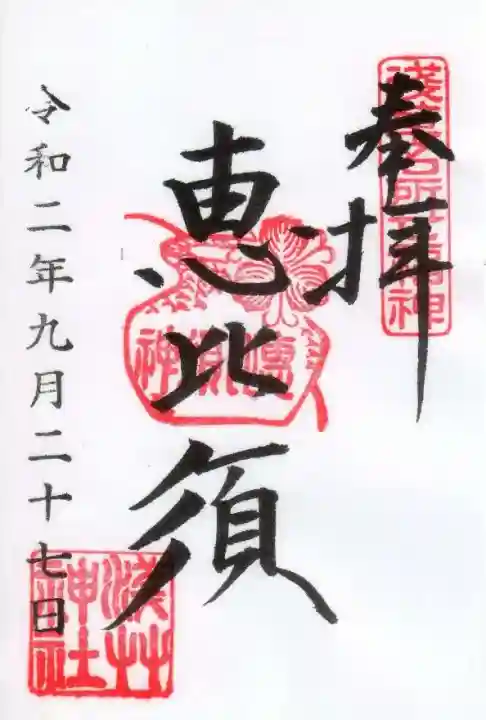 奉拝
浅草名所七福神
恵比須
令和二年九月二十七日
浅草神社